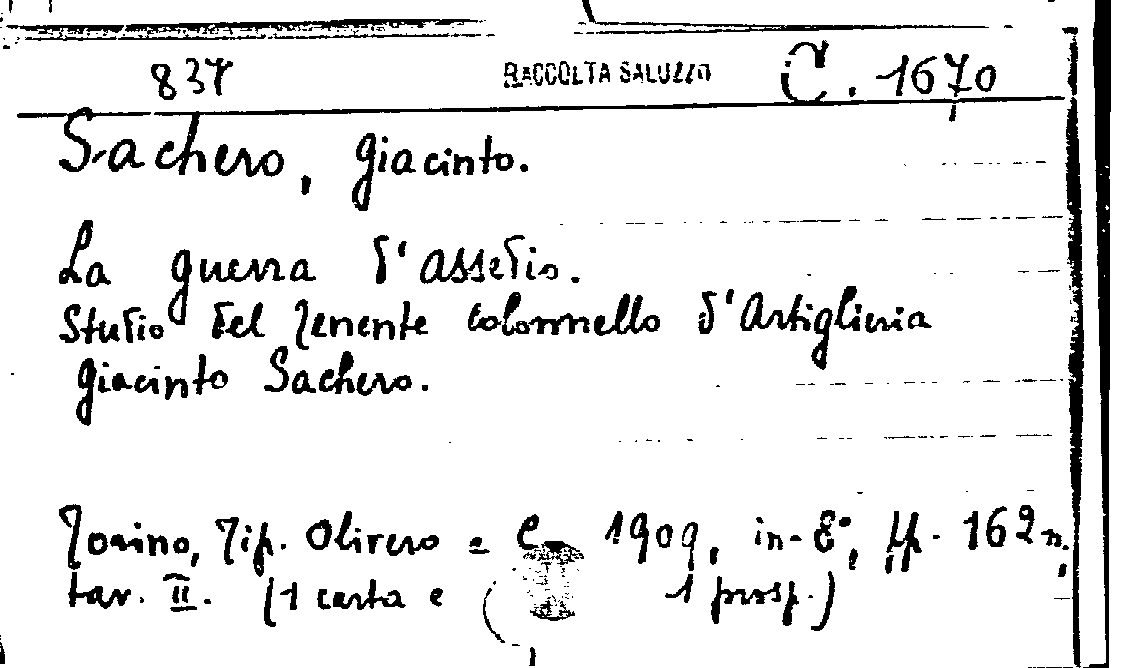 837 RACCOLTA SALUZZO C. 1670
Sachero, Giacinto.
La guerra d'assedio.
Studio del Tenente Colonnello d'Artiglieria
Giacinto Sachero.
Torino, Tip. Olivero e C. 1909, in-8°, pp. 162 n,
tav. II. (1 carta e 1 prosp.)